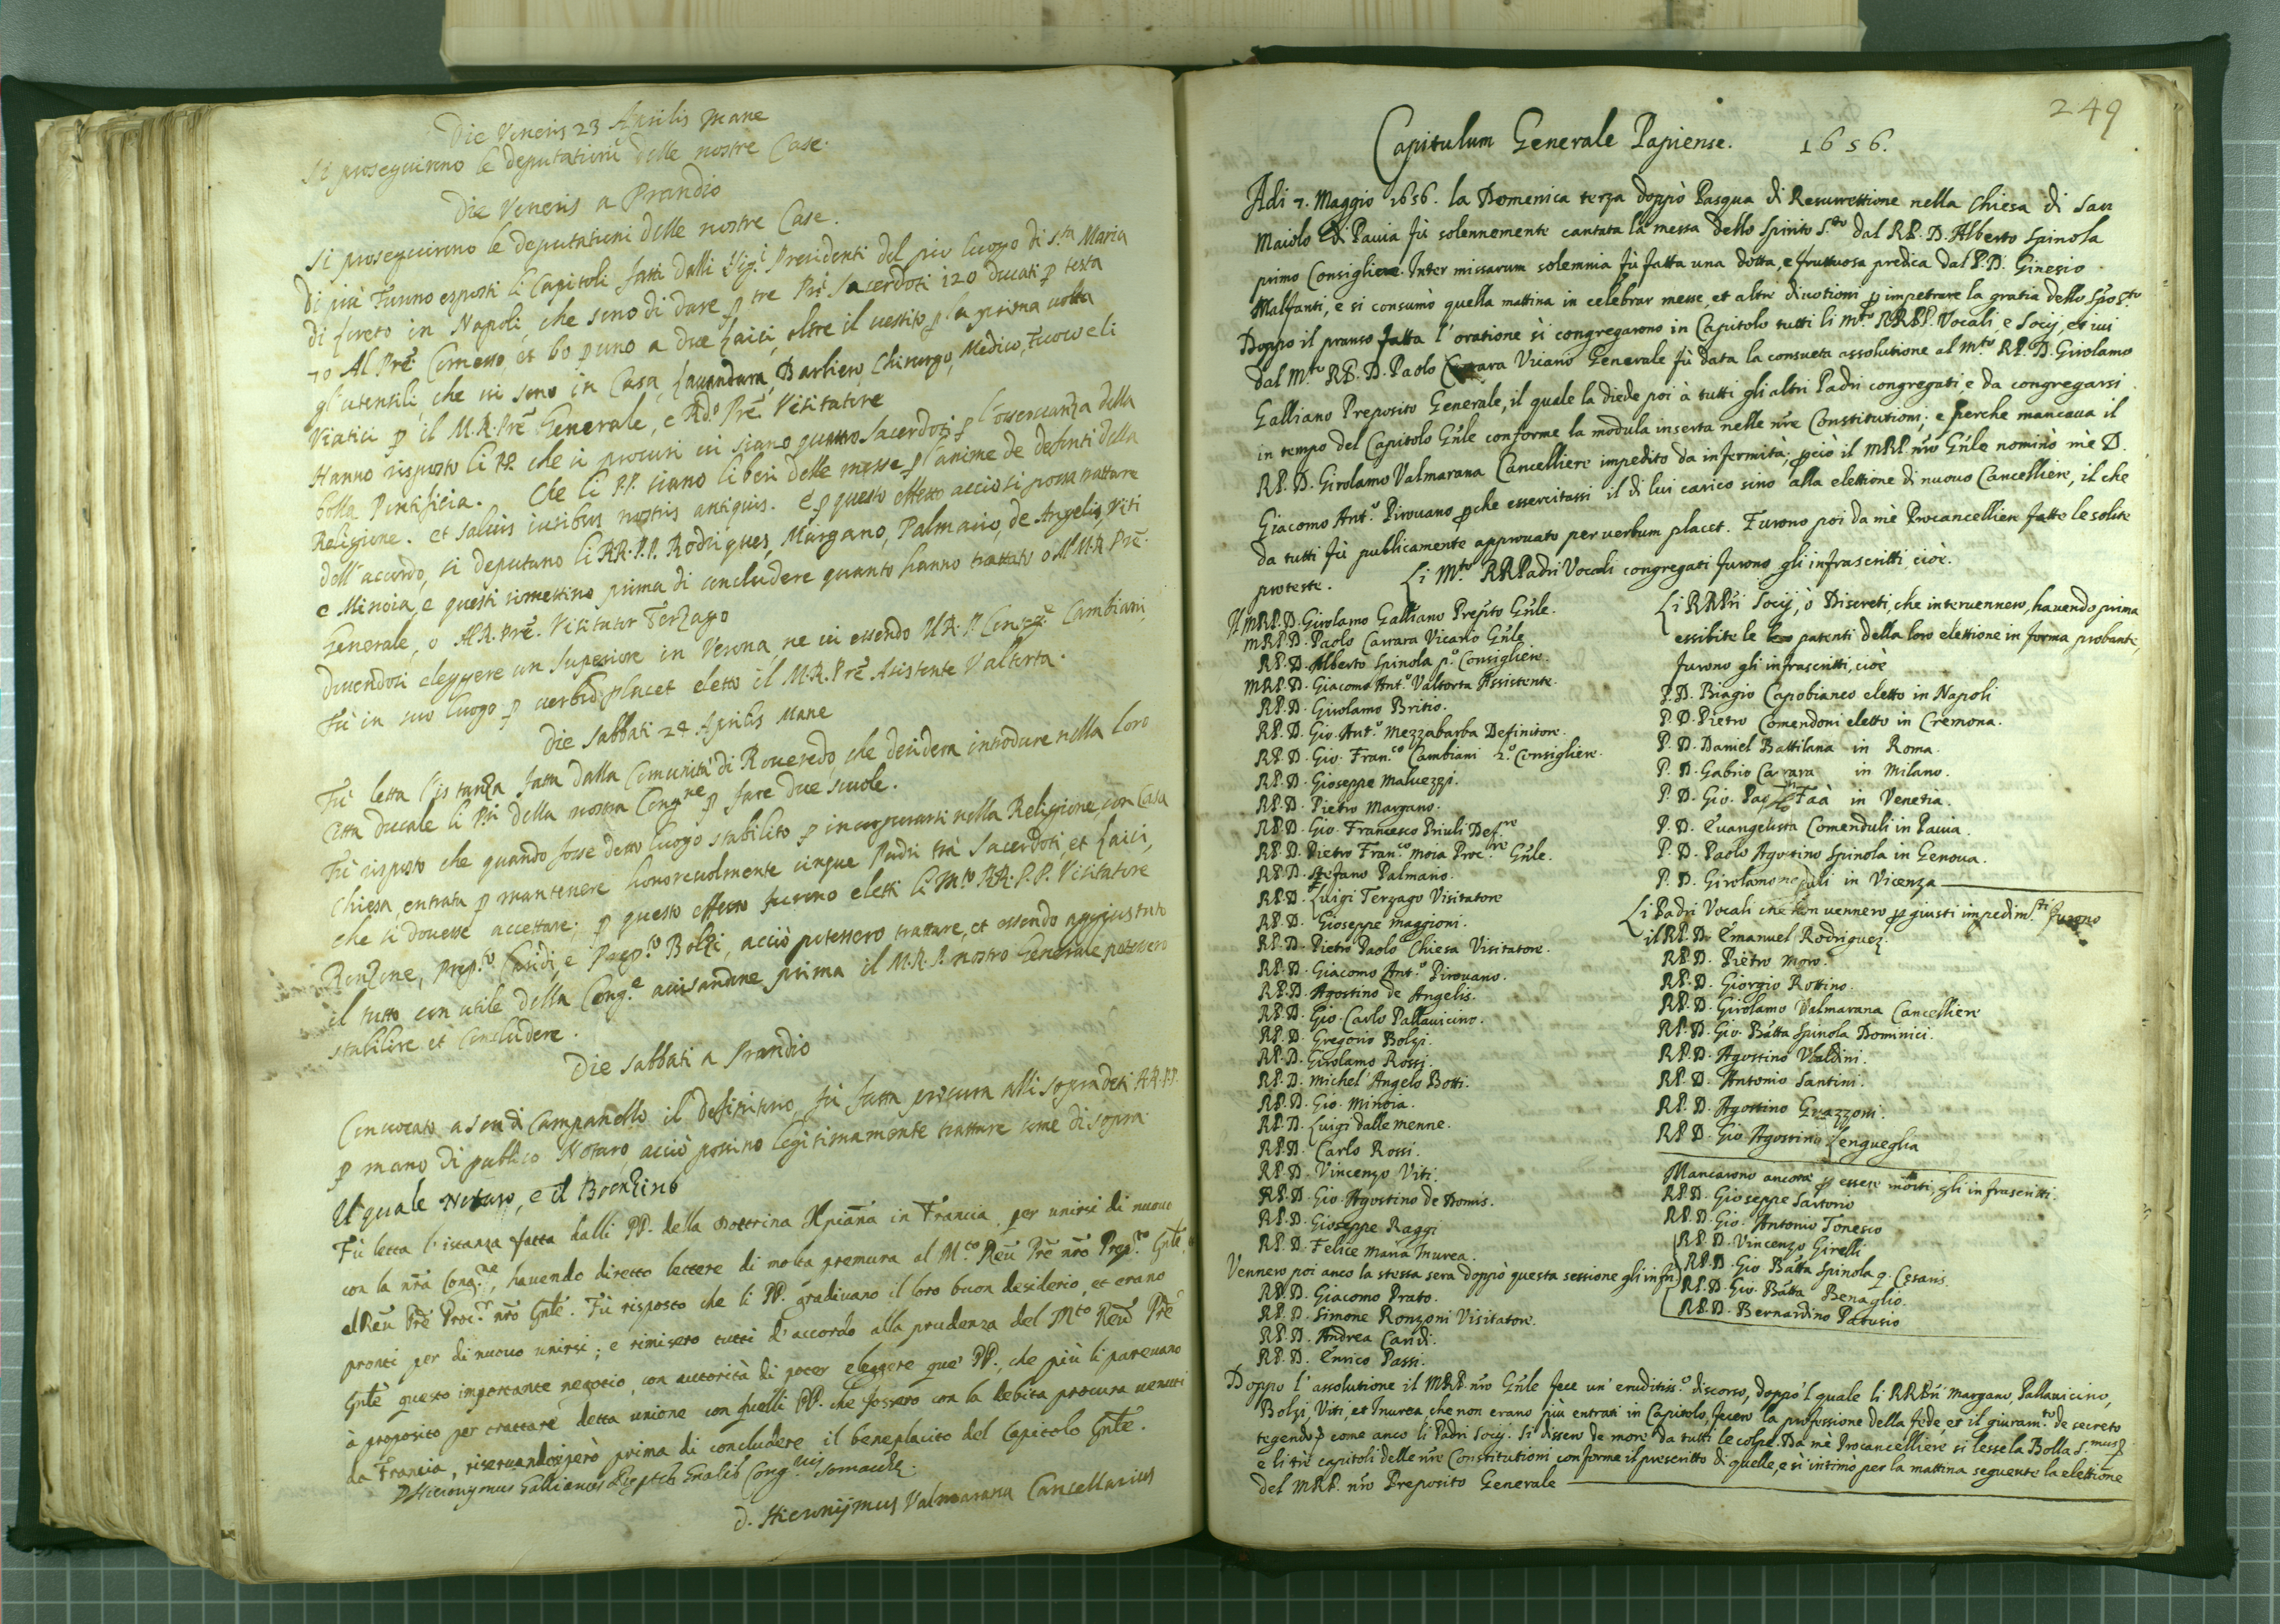 Die Veneris 23 Aprilis Mane
Si proseguirono le deputationi delle nostre Case.
Die Veneris a Prandio
Si proseguirono le deputationi delle nostre Case.
Di più Furono esposti li Capitoli fatti dalli Sig.i Presidenti del pio luogo di S.ta Maria
di Loreto in Napoli, che sono di dare p tre Pri Sacerdoti 120 ducati p testa
70 Al Prē Comesso, et 60 p uno a due Laici, oltre il vestito p la prima volta
gl'utensili, che vi sono in Casa, Lavandara, Barbiero, Chirurgo, Medico, Fuoco e li
Viatici p il M.R. Prē Generale, e Rdo Prē Visitatore
Hanno risposto li PP. che si procuri vi siano quattro Sacerdoti p l'osservanza della
bolla Pontificia. Che li PP. siano liberi delle messe p l'anime de defonti della
Religione. et salvis iuribus nostris antiquis. E p questo effetto acciò si possa trattare
dell'accordo, si deputano li RR. P.P. Rodriques, Margano, Palmairo, de Angelis, Viti
e Minoia, e questi rimettino prima di concludere quanto hanno trattato o Al M.R. Prē
Generale, o Al R. Prē Visitatur Terzago
Dovendosi eleggere un Superiore in Verona ne vi essendo Il R. P. Cambiani,
Fù in suo luogo p verbū placet eletto il M.R. Prē Asistente Valtorta.
Die Sabbati 24 Aprilis Mane
Fù letta l'istanza fatta dalla Comunità di Roveredo, che desidera introdure nella loro
Città ducale li Pri della nostra Cong.ne p fare due scuole.
Fù risposto che quando fosse detto luogo stabilito p incorporarsi nella Religione, con Casa
Chiesa, entrata p mantenere honorevolmente cinque Padri trà Sacerdoti, et Laici,
che si dovesse accettare; p questo effetto furono eletti li M.to RR. P.P. Visitatore
Ronzone, Prep.to Caridi, e Prep.to Bolzi, acciò potessero trattare, et essendo aggiustato
il tutto con utile della Cong.e avisandone prima il M.R.P. nostro Generale potessero
stabilire et concludere.
Die Sabbati a Prandio
Convocato a son di Campanello il definitorio, fù fatta procura alli sopradeti RR. PP.
p mano di publico Notaro, acciò possino legitimamente trattare come di sopra
Il quale Notaro, e il Boenzino
Fù letta l'istanza fatta dalli PP. della Dottrina Xpiana in Francia, per unirsi di nuovo
con la nrā Cong.ne, havendo diretto lettere di molta premura al M.to Reū Prē nrō Prep.to Gnlē, et
al Reū Prē Proc.r nrō Gnlē. Fù risposto che li PP. gradivano il loro buon desiderio, et erano
pronti per di nuovo unirsi; e rimisero tutti d'accordo alla prudenza del M.to Reū Prē
Gnlē questo importante negotio, con auttorità di poter eleggere que' PP., che più li parevano
à proposito per trattare detta unione con quelli PP. che fossero con la debita procura venuti
da Francia, riservandosi però prima di concludere il beneplacito del Capitolo Gnlē.
D. Hieronymus Gallianus Cong.nis Somaschē.
D. Hieronijmus Valmarana Cancellarius
249
Capitulum Generale Papiense. 1656.
Adi 7. Maggio 1656. la Domenica terza doppò Pasqua di Resurrettione nella Chiesa di San
Maiolo di Pavia fù solennemente cantata la messa dello Spirito S.to dal RP. D. Alberto Spinola
primo Consigliere. Inter missarum solemnia fù fatta una dotta, e fruttuosa predica dal P. D. Ginesio
Malfanti, e si consumò quella mattina in celebrar messe, et altre divotioni p impetrare la gratia dello Spō S.to
Doppo il pranso fatta l'oratione si congregarono in Capitolo tutti li M.to RRPP. Vocali, e Socij, et ivi
dal M.to RP. D. Paolo Carrara Vicario Generale fù data la consueta assolutione al M.to RP. D. Girolamo
Galliano Preposito Generale, il quale la diede poi à tutti gli altri Padri congregati e da congregarsi
in tempo del Capitolo Gnle conforme la modula inserta nelle nre Constitutioni; e perche mancava il
RP. D. Girolamo Valmarana Cancelliere impedito da infermità; pciò il MRP. nrō Gnle nominò mè D.
Giacomo Ant.o Pirovano pche essercitassi il di lui carico sino alla elettione di nuovo Cancelliere, il che
da tutti fù publicamente approvato per verbum placet. Furono poi da mè Procancelliere fatte le solite
proteste. Li M.to RR Padri Vocali congregati furono gli infrascritti cioè.
Il MRP. D. Girolamo Galliano Prepito Gnle.
MRP. D. Paolo Carrara Vicario Gnle
RP. D. Alberto Spinola p.o Consigliere.
MRP. D. Giacomo Ant.o Valtorta Assistente.
RP. D. Girolamo Britio.
RP. D. Gio. Ant.o Mezzabarba Definitore.
RP. D. Gio. Fran.co Cambiani 2.o Consigliere.
RP. D. Gioseppe Malvezzi.
RP. D. Pietro Margano.
RP. D. Gio. Francesco Priuli Def.re
RP. D. Pietro Fran.co Moia Proc.re Gnle.
RP. D. Stefano Palmairo.
RP. D. Luigi Terzago Visitatore
RP. D. Gioseppe Maggioni.
RP. D. Pietro Paolo Chiesa Visitatore.
RP. D. Giacomo Ant.o Pirovano.
RP. D. Agostino de Angelis.
RP. D. Gio. Carlo Pallavicino.
RP. D. Gregorio Bolzi.
RP. D. Girolamo Rossi.
RP. D. Michel Angelo Botti.
RP. D. Gio. Minoia.
RP. D. Luigi dalle menne.
RP. D. Carlo Rossi.
RP. D. Vincenzo Viti.
RP. D. Gio. Agostino de Domis.
RP. D. Gioseppe Raggi
RP. D. Felice Maria Inurea.
Vennero poi anco la stessa sera doppò questa sessione gli infri
RP. D. Giacomo Prato.
RP. D. Simone Ronzoni Visitatore.
RP. D. Andrea Caridi.
RP. D. Enrico Passi.
Li RRPri Socij, ò Discreti, che intervennero, havendo prima
essibite le patenti della loro elettione in forma probante,
furono gli infrascritti, cioè
P. D. Biagio Capobianco eletto in Napoli
P. D. Pietro Comendoni eletto in Cremona.
P. D. Daniel Battilana in Roma.
P. D. Gabrio Carrara in Milano.
P. D. Gio. Paolo Faà in Venetia.
P. D. Evangelista Comenduli in Pavia.
P. D. Paolo Agostino Spinola in Genova.
P. D. Girolamo in Vicenza
Li Padri Vocali che non vennero p giusti impedim.ti furono
il RP. D. Emanuel Rodriguez.
RP. D. Pietro Moro.
RP. D. Giorgio Rottino.
RP. D. Girolamo Valmarana Cancelliere
RP. D. Gio. Batta Spinola Dominici.
RP. D. Agostino Ubaldini.
RP. D. Antonio Santini.
RP. D. Agostino Guazzoni.
RP. D. Gio. Agostino Lengueglia
Mancarono ancora p essere morti, gli infrascritti.
RP. D. Gioseppe Sartorio
RP. D. Gio. Antonio Tonesio
RP. D. Vincenzo Girelli
RP. D. Gio Batta Spinola q. Cesaris.
RP. D. Gio. Batta Benaglio.
RP. D. Bernardino Patusio
Doppo l'assolutione il MRP. nrō Gnle fece un'eruditiss.o discorso, doppò 'l quale li RRPri Margano, Pallavicino,
Bolzi, Viti, et Inurea che non erano più entrati in Capitolo, fecero la professione della fede, et il giuram.to de secreto
tegendo, come anco li Padri Socij. Si dissero de more da tutti le colpe. Da mè Procancelliere si lesse la Bolla
e li trè capitoli delle nre Constitutioni conforme il prescritto di quelle, e si intimò per la mattina seguente la elettione
del MRP. nrō Preposito Generale